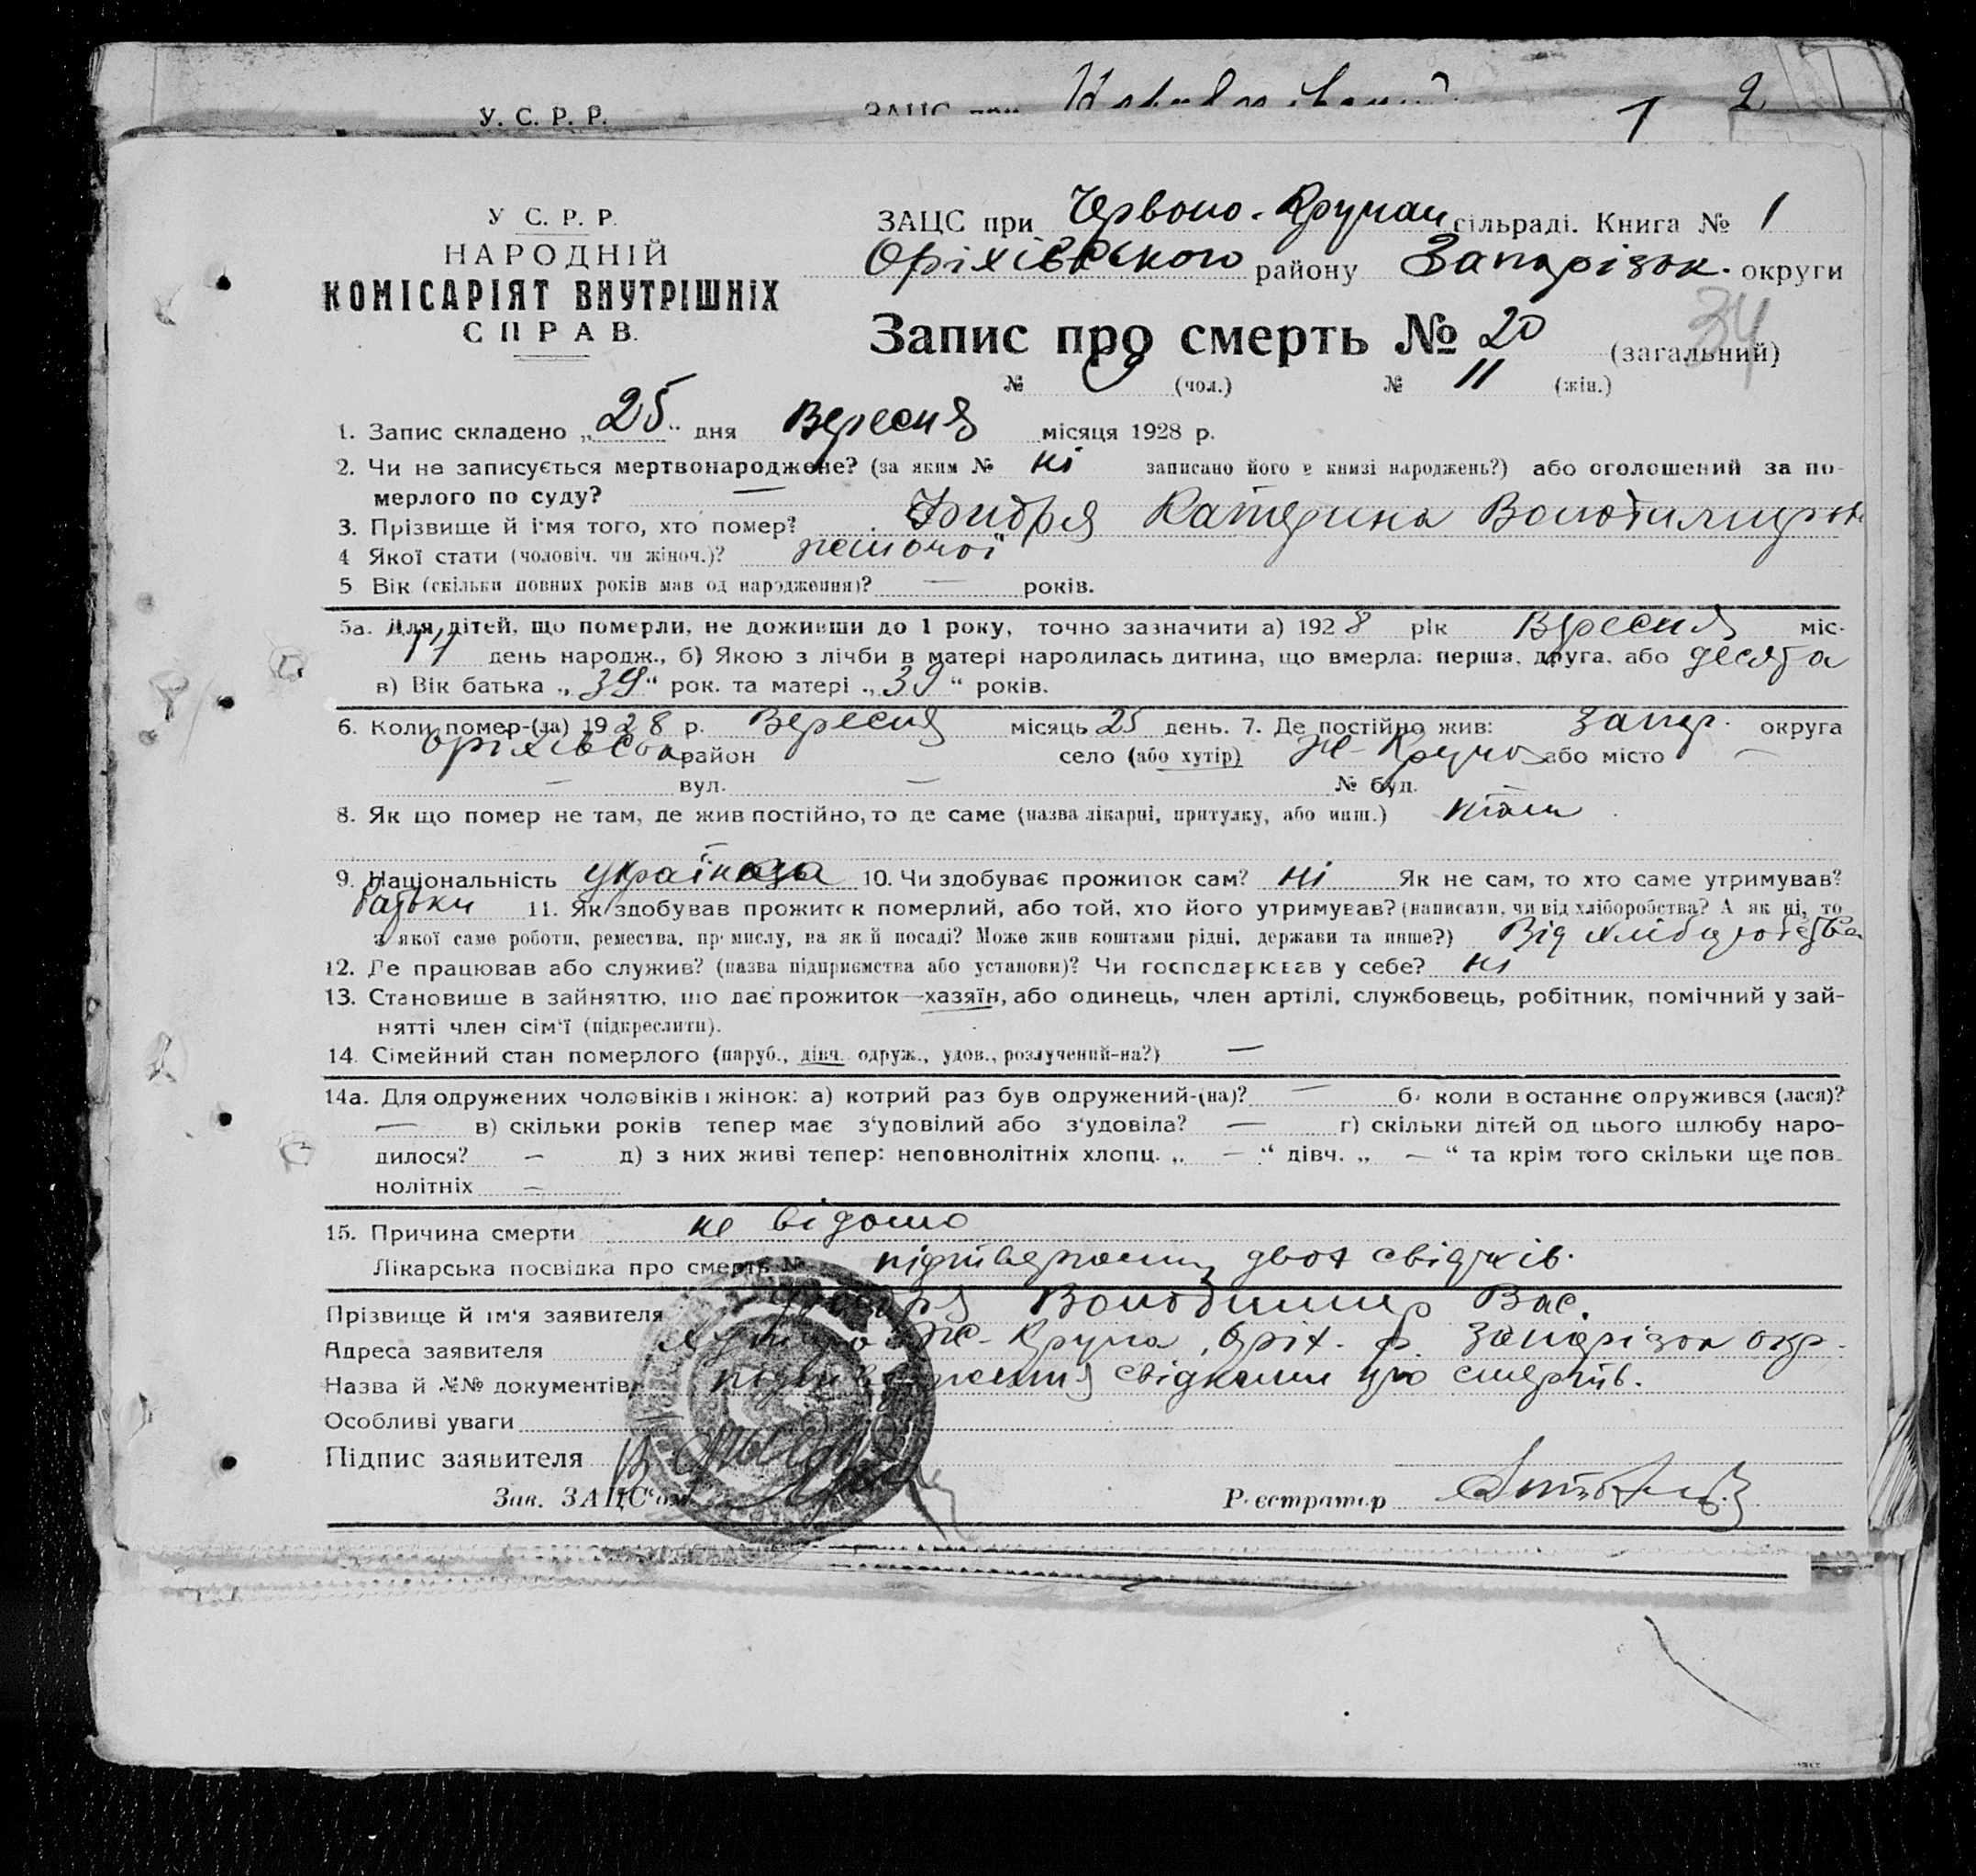 У. С. Р. Р.
ЗАЦС при
1 2
У С. Р. Р.
НАРОДНІЙ
КОМІСАРІЯТ ВНУТРІШНІХ
СПРАВ.
ЗАЦС при Червоно-Кручан сільраді. Книга № 1
Оріхівського району Запорізок. округи
34
Запис про смерть № 20 (загальний)
№ 9 (чол.) № 11 (жін.)
1. Запис складено „25" дня Вересня місяця 1928 р.
2. Чи не записується мертвонароджене? (за яким № ні записано його в книзі народжень?) або оголошений за по-
мерлого по суду? —
3. Прізвище й ім'я того, хто помер? Катерина Володимировна
4 Якої стати (чоловіч. чи жіноч.)? жіночої
5 Вік (скільки повних років мав од народження)? — років.
5а. Для дітей, що померли, не доживши до 1 року, точно зазначити а) 1928 рік Вересня міс.
17 день народж., б) Якою з лічби в матері народилась дитина, що вмерла: перша, друга, або десята
в) Вік батька „39" рок. та матері „39" років.
6. Коли помер-(ла) 1928 р. Вересня місяць 25 день. 7. Де постійно жив: Запор. округа
Оріхівськ район село (або хутір) або місто —
— вул. — № буд.
8. Як що помер не там, де жив постійно, то де саме (назва лікарні, притулку, або инш.)
9. Національність українка 10. Чи здобуває прожиток сам? ні Як не сам, то хто саме утримував?
батьки 11. Як здобував прожиток померлий, або той, хто його утримував? (написати, чи від хліборобства? А як ні, то
з якої саме роботи, ремества, промислу, на якій посаді? Може жив коштами рідні, держави та инше?) Від хліборобства
12. Де працював або служив? (назва підприємства або установи)? Чи господарював у себе? ні
13. Становище в зайняттю, що дає прожиток—хазяїн, або одинець, член артілі, службовець, робітник, помічний у зай-
нятті член сім'ї (підкреслити).
14. Сімейний стан померлого (паруб., дівч. одруж., удов., розлучений-на?) —
14а. Для одружених чоловіків і жінок: а) котрий раз був одружений-(на)? — б. коли в останнє одружився (лася)?
— в) скільки років тепер має з'удовілий або з'удовіла? — г) скільки дітей од цього шлюбу наро-
дилося? — д) з них живі тепер: неповнолітніх хлопц. „ — " дівч. „ — " та крім того скільки ще пов-
нолітніх —
15. Причина смерти не відомо
Лікарська посвідка про смерть № двох свідків.
Прізвище й ім'я заявителя Володимир Вас.
Адреса заявителя Оріх. р. Запорізок окр.
Назва й №№ документів підтвердження свідками про смерть.
Особливі уваги
Підпис заявителя
Зав. ЗАЦС'ом Реєстратор